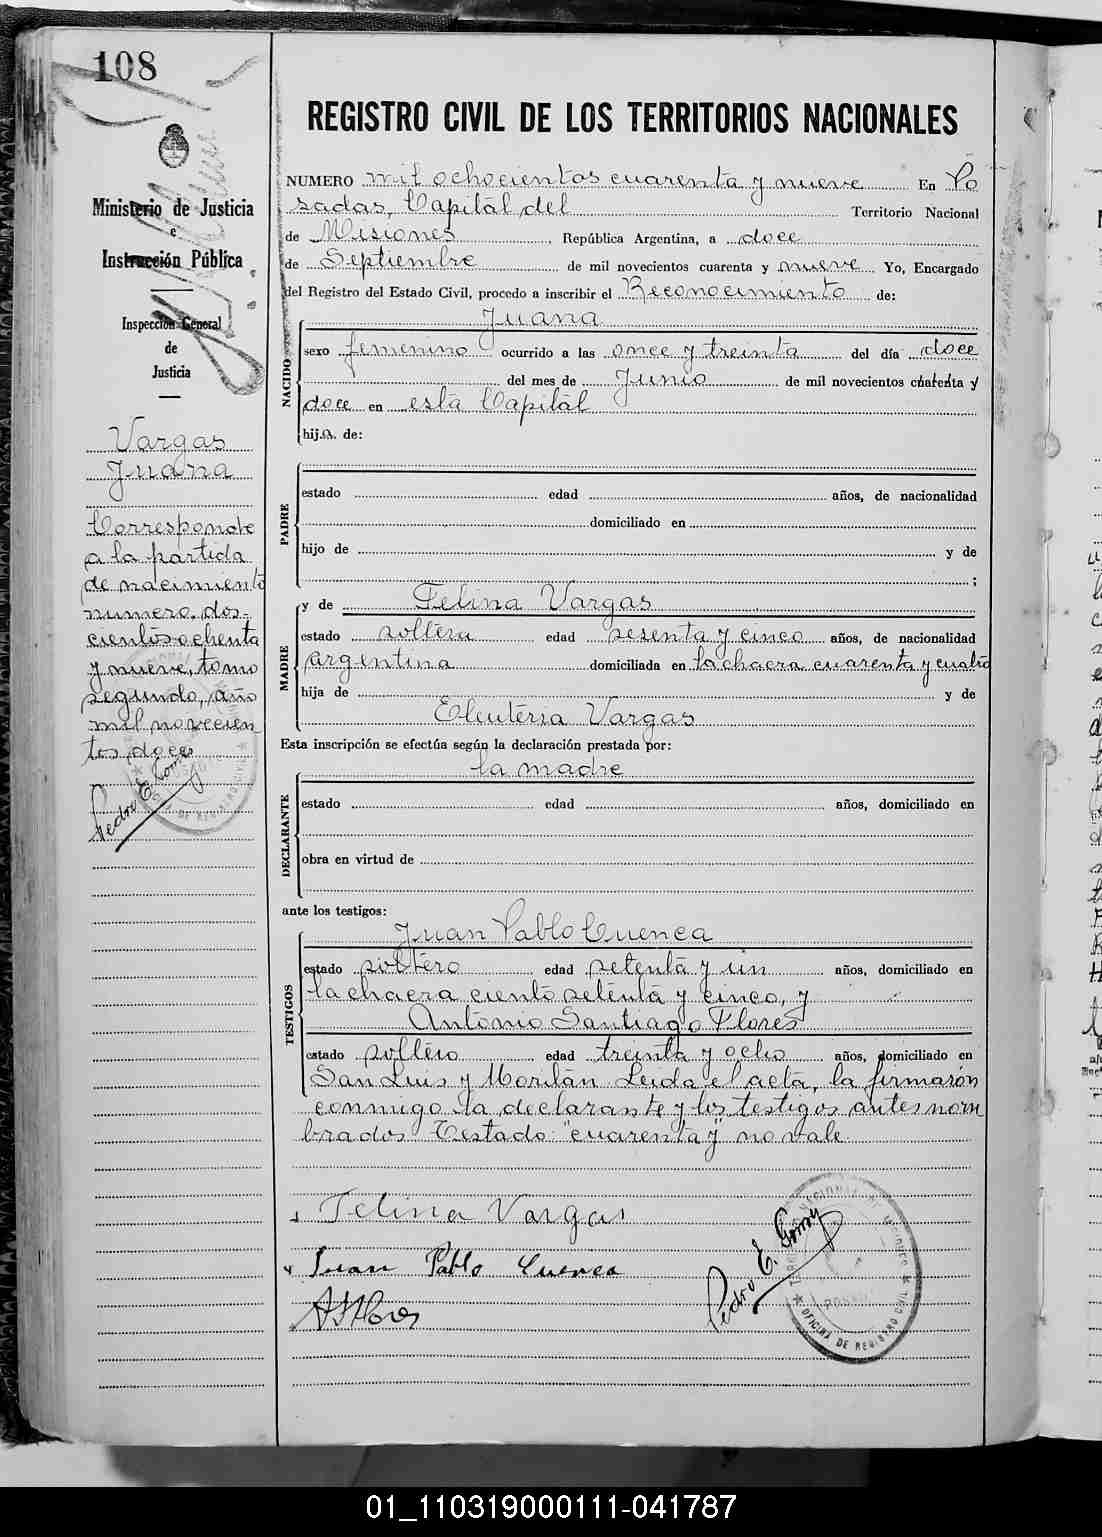 108
REGISTRO CIVIL DE LOS TERRITORIOS NACIONALES
Ministerio de Justicia
e
Instrucción Pública
Inspección General
de
Justicia
Vargas
Juana
Corresponde
a la partida
de nacimiento
numero, dos-
cientos ochenta
y nueve, tomo
segundo, año
mil novecien
tos doce
Pedro E. Gomez
NUMERO mil ochocientos cuarenta y nueve En Po
sadas, Capital del Territorio Nacional
de Misiones, República Argentina, a doce
de Septiembre de mil novecientos cuarenta y nueve Yo, Encargado
del Registro del Estado Civil, procedo a inscribir el Reconocimiento de:
NACIDO
Juana
sexo femenino ocurrido a las once y treinta del día doce
del mes de Junio de mil novecientos cuarenta y
doce en esta Capital
hija de:
PADRE
estado edad años, de nacionalidad
domiciliado en
hijo de y de
;
MADRE
y de Felina Vargas
estado soltera edad sesenta y cinco años, de nacionalidad
argentina domiciliada en la chacra cuarenta y cuatro
hija de y de
Eleuteria Vargas
Esta inscripción se efectúa según la declaración prestada por:
DECLARANTE
la madre
estado edad años, domiciliado en
obra en virtud de
ante los testigos:
TESTIGOS
Juan Pablo Cuenca
estado soltero edad setenta y un años, domiciliado en
la chacra ciento setenta y cinco, y
Antonio Santiago Flores
estado soltero edad treinta y ocho años, domiciliado en
San Luis y Leida el acta, la firmaron
conmigo la declarante y los testigos antes nom
brados Testado: "cuarenta y" no vale.
Felina Vargas
Juan Pablo Cuenca
ASFlores
Pedro E. Gomez
OFICINA DE REGISTRO CIVIL
01_110319000111-041787